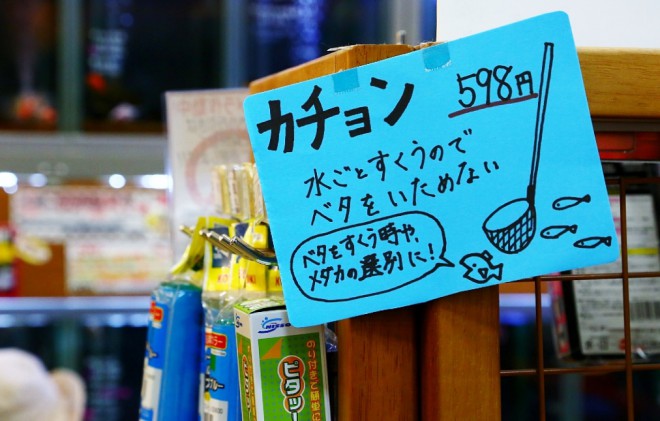 カチョン
598円
水ごとすくうので
ベタをいためない
ベタをすくう時や、
メダカの選別に!
のり付きで簡単に
ピタッ